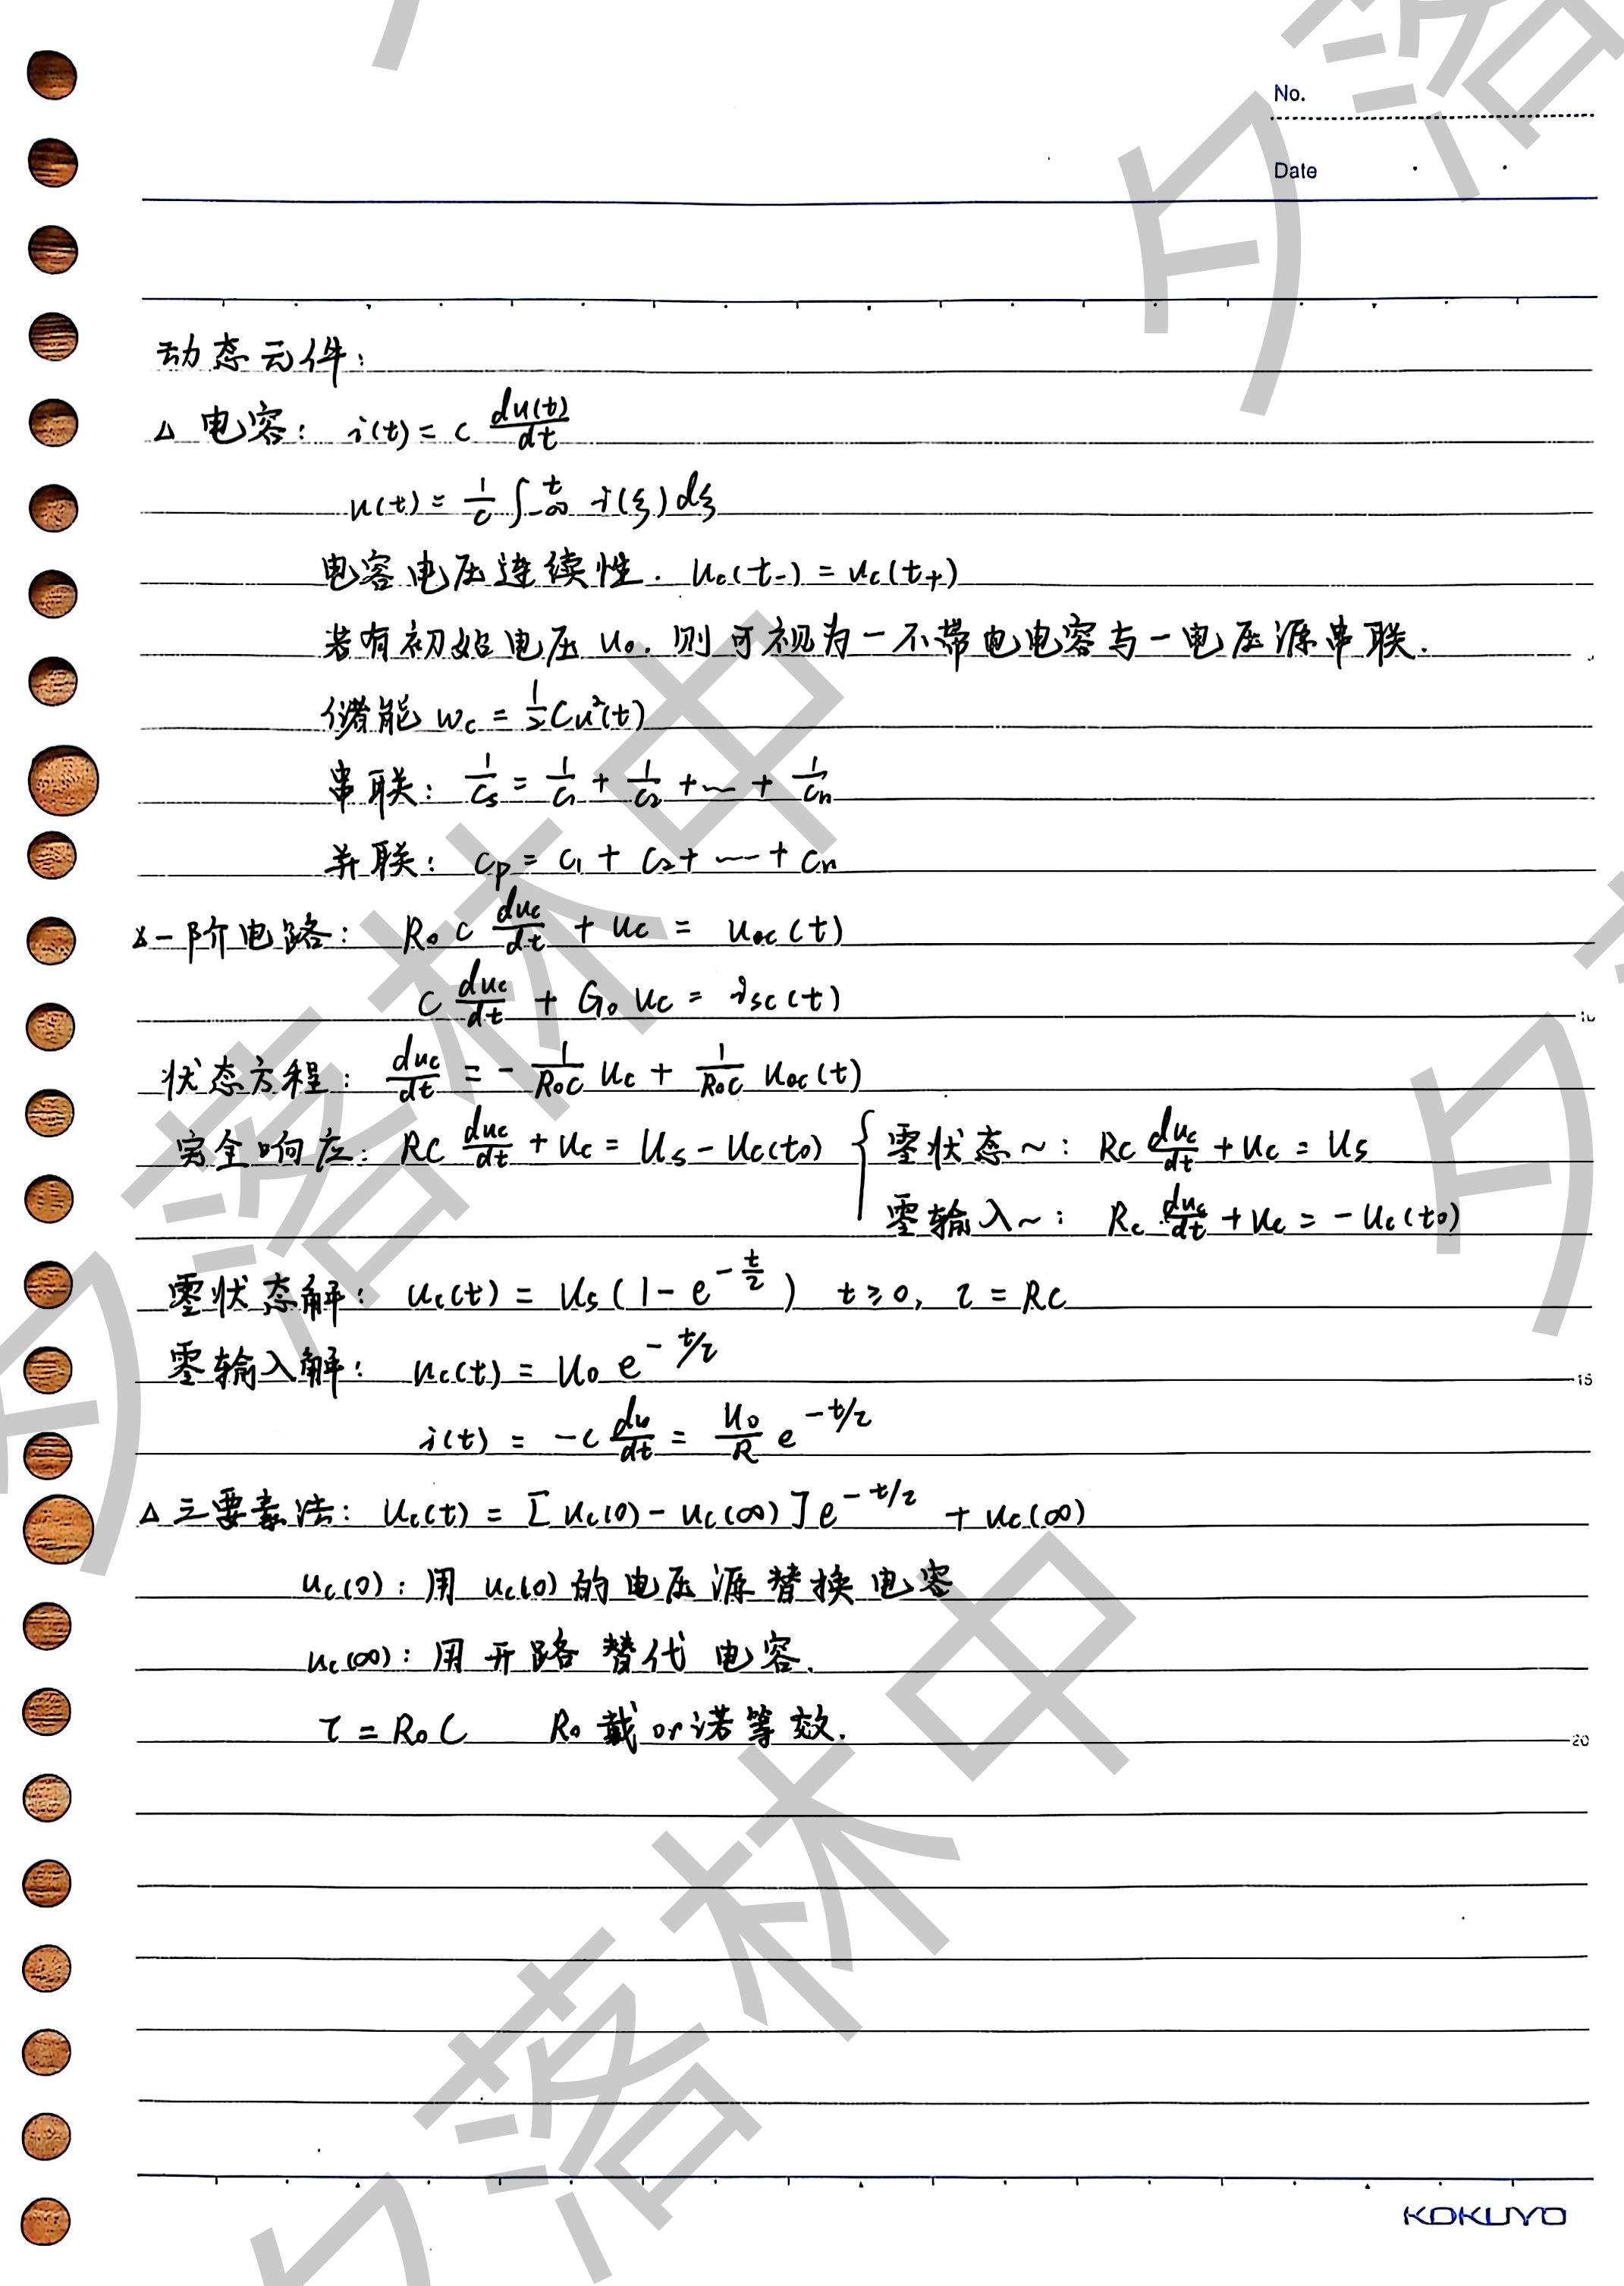 No.
Date
动态元件:
△ 电容: i(t) = C du(t)/dt
u(t) = 1/C ∫_{-∞}^{t} i(ξ) dξ
电容电压连续性. uc(t-) = uc(t+)
若有初始电压 u0. 则可视为一不带电电容与一电压源串联.
储能 wc = 1/2 Cu²(t)
串联: 1/Cs = 1/C1 + 1/C2 + … + 1/Cn
并联: Cp = C1 + C2 + … + Cn
△ 一阶电路: R0 C duc/dt + uc = uoc(t)
C duc/dt + G0 uc = isc(t)
状态方程: duc/dt = - 1/R0C uc + 1/R0C uoc(t)
完全响应: RC duc/dt + uc = Us - Uc(t0) { 零状态~: RC duc/dt + uc = Us
零输入~: RC duc/dt + uc = - Uc(t0)
零状态解: uc(t) = Us(1 - e^{-t/τ}) t ≥ 0, τ = RC
零输入解: uc(t) = U0 e^{-t/τ}
i(t) = -C du/dt = U0/R e^{-t/τ}
△ 三要素法: Uc(t) = [uc(0) - uc(∞)] e^{-t/τ} + uc(∞)
uc(0): 用 uc(0) 的电压源替换电容
uc(∞): 用开路替代电容.
τ = R0C R0 戴or诺等效.
10
15
20
KOKUYO
夕落林中
夕落林中